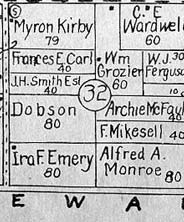 5
Myron Kirby
79
C. E.
Wardwell
60
Frances E. Carl
40
Wm
Grozier
60
W.J. 30
Fergus
J.H. Smith Est
40
10
32
Dobson
80
Archie McFayl
40
F. Mikesell 40
Ira F. Emery
80
Alfred A.
Monroe 80
E W A